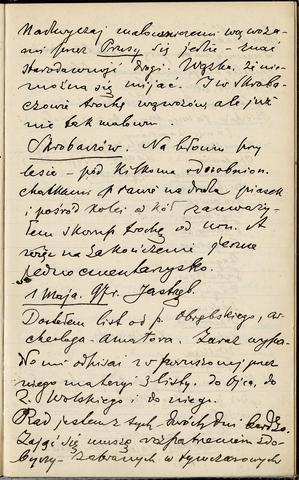 Nadzwyczaj malowniczemi wąwoza-
mi przez Prusy się jedzie - znać
starodawność drogi. Wązka, że nie
można się mijać. I w Skroba-
czowie trochę wąwozów, ale już
nie tak malown.
Skrobaczów. Na błoniu przy
lesie - pod kilkoma odosobnion.
chatkami prawie na drodze piasek
i pośród kolei od kół zauważy-
łem skorup trochę od urn. A
więc na zakończenie jeszcze
jedno cmentarzysko.
1 Maja. 97 r. Jastrząb.
Dostałem list od p. Obrębskiego, ar-
cheologa-amatora. Zaraz wypa-
dło mi odpisać i w poruszonej przez
niego materyi 3 listy. do Ojca, do
Z. Wolskiego i do niego.
Rad jestem z tych dwóch dni bardzo.
Zająć się muszę rozpatrzeniem zdo-
byczy - zebranych w tymczasowych